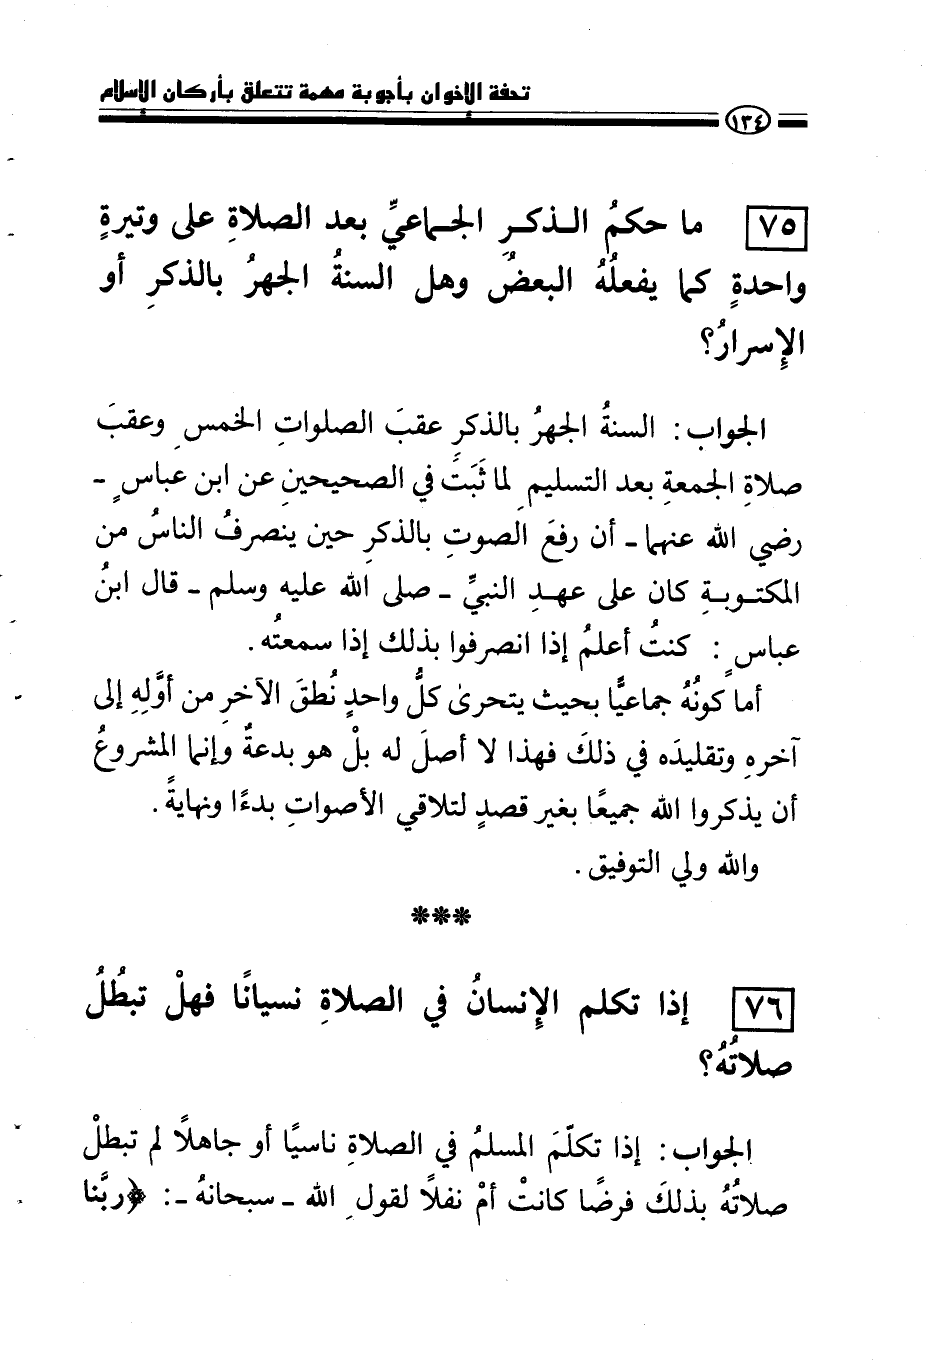 تحفة الإخوان بأجوبة مهمة تتعلق بأركان الإسلام
١٣٤
٧٥ ما حكمُ الـذكـرِ الجـماعيِّ بعد الصلاةِ على وتيرةٍ
واحدةٍ كما يفعلُهُ البعضُ وهل السنةُ الجهرُ بالذكرِ أو
الإِسرارُ؟
الجواب: السنةُ الجهرُ بالذكرِ عقبَ الصلواتِ الخمسِ وعقبَ
صلاةِ الجمعةِ بعد التسليمِ لما ثَبَتَ في الصحيحينِ عن ابن عباسٍ ـ
رضي الله عنهما ـ أن رفعَ الصوتِ بالذكرِ حين ينصرفُ الناسُ من
المكتـوبـةِ كان على عهـدِ النبيِّ ـ صلى الله عليه وسلم ـ قال ابنُ
عباسٍ: كنتُ أعلمُ إذا انصرفوا بذلك إذا سمعتُه.
أما كونُهُ جماعيًّا بحيث يتحرىٰ كلُّ واحدٍ نُطقَ الآخرِ من أوَّلِهِ إلى
آخرهِ وتقليدَه في ذلكَ فهذا لا أصلَ له بلْ هو بدعةٌ وإنما المشروعُ
أن يذكروا الله جميعًا بغير قصدٍ لتلاقي الأصواتِ بدءًا ونهايةً.
والله ولي التوفيق.
***
٧٦ إذا تكلم الإِنسانُ في الصلاةِ نسيانًا فهلْ تبطُلُ
صلاتُهُ؟
الجواب: إذا تكلَّمَ المسلمُ في الصلاةِ ناسيًا أو جاهلًا لم تبطلْ
صلاتُهُ بذلكَ فرضًا كانتْ أمْ نفلًا لقولِ الله ـ سبحانهُ ـ: ﴿ربَّنا